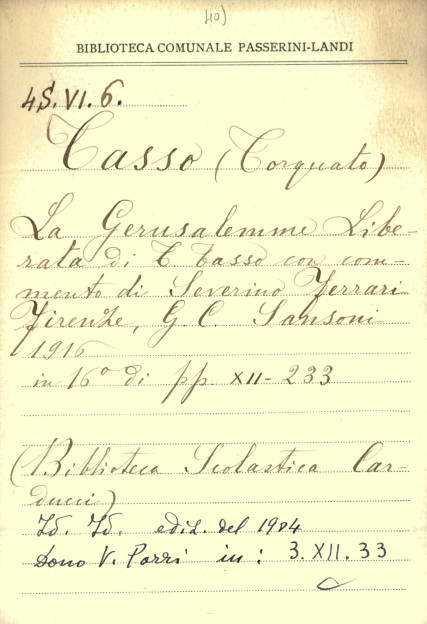 40)
BIBLIOTECA COMUNALE PASSERINI-LANDI
4S.VI.6.
Tasso (Torquato)
La Gerusalemme Libe-
rata di T. Tasso con com-
mento di Severino Ferrari
Firenze, G. C. Sansoni
1916
in 16° di pp XII-233
(Biblioteca Scolastica Car-
ducci)
Id. Id. ediz. del 1904
Dono V. Porri in: 3.XII.33